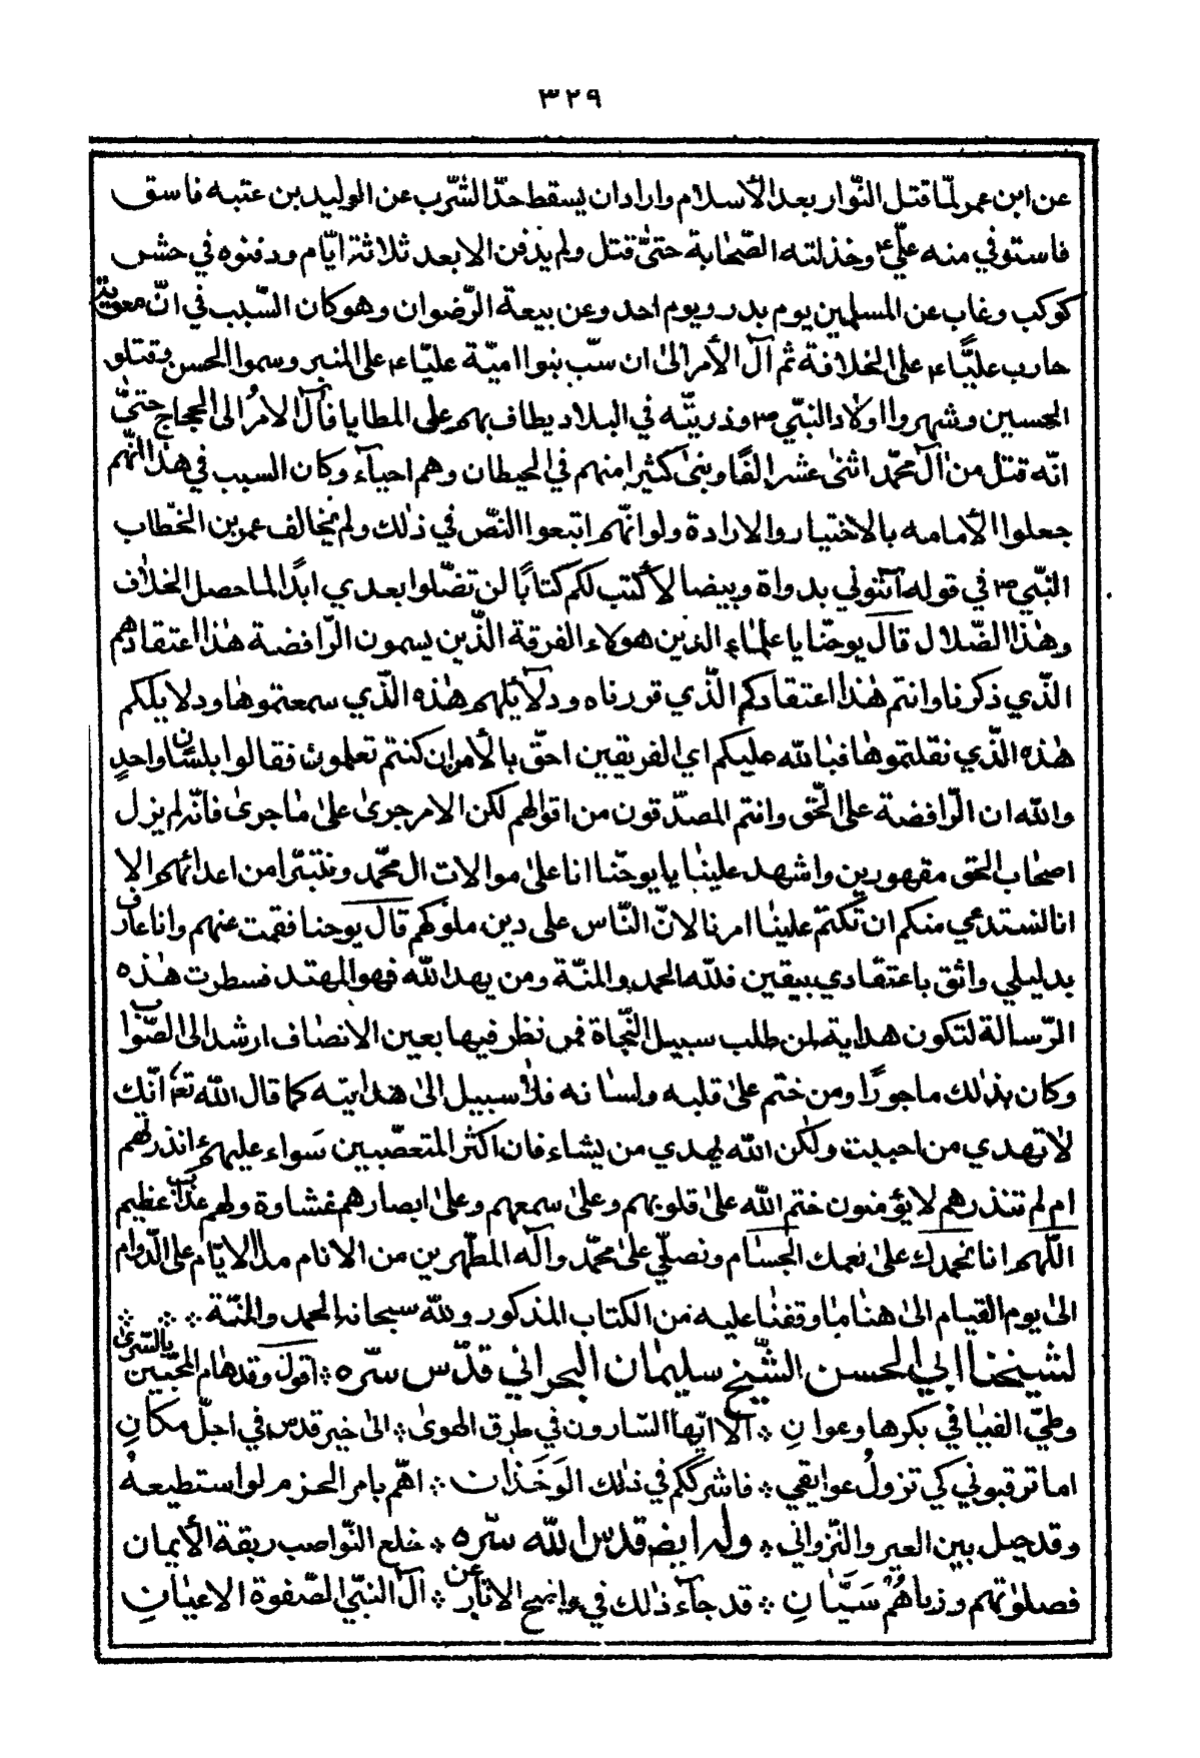 ٣٢٩
عن ابن عمر لمّا قتل النّوار بعد الأسلام واراد ان يسقط حدّ الشّرب عن الوليد بن عتبه فاسق
فاستوفي منه عليّ ع وخذلته الصّحابة حتىّ قتل ولم يدفن الا بعد ثلاثة ايّام ودفنوه في حشّ
كوكب وغاب عن المسلمين يوم بدر ويوم احد وعن بيعة الرّضوان وهو كان السّبب في انّ معوية
حارب عليّاً ع على الخلافة ثم آل الأمر الىٰ ان سبّ بنوا اميّة عليّاء على المنبر وسموا الحسن وقتلو
الحسين وشهروا اولاد النبّي ص وذريتّه في البلاد يطاف بهم على المطايا فآل الامرُ الى الحجاج حتىّ
انّه قتل من آل محمّد اثنىٰ عشر الفًا وبنىٰ كثيرا منهم في الحيطان وهم احيآء وكان السبب في هذا انّهم
جعلوا الأمامه بالاختيار والارادة ولو انّهم اتبعوا النصّ في ذٰلك ولم يخالف عمر بن الخطّاب
النبّي ص في قوله آتئوني بدواة وبيضا لأكتب لكم كتابًا لن تضّلوا بعدي ابدًا لما حصل الخلاف
وهٰذا الضّلال قال يوحنّا يا علمٰاء الدين هولاء الفرقة الذّين يسمون الرّافضة هٰذا اعتقادهم
الذّي ذكرنا وانتم هٰذا اعتقادكم الذّي قررناه ودلآئلهم هٰذه الذّي سمعتموها ودلايلكم
هٰذه الذّي نقلتموها فبالله عليكم اي الفريقين احقّ بالأمر ان كنتم تعلمون فقالوا بلسان واحدٍ
والله ان الرّافضة على الحّق وانتم المصدّقون من اقوالهم لكن الامر جرىٰ علىٰ ماجرىٰ فانّه لم يزل
اصحٰاب الحق مقهورين واشهد علينٰا يا يوحنّا انا علىٰ موالات ال محمّد ونتبرّا من اعدائهم الا
انا نستدعي منكم ان تكتم علينٰا امرنا لانّ النّاس على دين ملوكهم قال يوحنا فقمت عنهم وانا عارف
بدليلي واثق باعتقادي بيقين فلله الحمد والمنّة ومن يهد الله فهو المهتد فسطرت هٰذه
الرّسالة لتكون هداية لمن طلب سبيل النّجاة فمن نظر فيها بعين الانصٰاف ارشد الى الصّواب
وكان بذٰلك ماجورًا ومن ختم علىٰ قلبه ولسانه فلا سبيل الىٰ هدايتّه كما قال الله تعٰ انّك
لا تهدي من احببت ولٰكن الله يهدي من يشاء فان اكثر المتعصّبين سَواء عليهم ءانذرتهم
ام لم تنذرهم لا يؤمنون ختم الله علىٰ قلوبهم وعلىٰ سمعهم وعلىٰ ابصارهم غشاوة ولهم عذاب عظيم
اللّهم انا نحمدك علىٰ نعمك الجسٰام ونصلّي علىٰ محمّد وآله المطهّرين من الانام مدا الايّام على الدّوام
الىٰ يوم القيام الىٰ هنا ما وقفنٰا عليه من الكتاب المذكور ولله سبحانه الحمد والمنّة
لشيخنا ابي الحسن الشّيخ سليمان البحراني قدّس سّره ؞ اقول وقد هام المحبّين بالسّرىٰ
وطيّ الفيافي بكرها وعوانِ ؞ الا ايّها السّارون في طرق الهوىٰ ؞ الىٰ خير قدس في اجلّ مكانِ
اما ترقبوني كي تزولُ عوايقي ؞ فاشرككم في ذٰلك الوَخَذان ؞ اهمّ بامر الحزم لو استطيعهُ
وقد حيل بين العير والنّزواني ؞ وله ايض قدس الله سّره ؞ خلع النّواصب ربقة الأيمان
فصلوٰتهم وزناهُمُ سَيّٰانِ ؞ قد جآء ذٰلك في واضح الاثار عن ؞ آل النبّي الصّفوة الاعيٰانِ